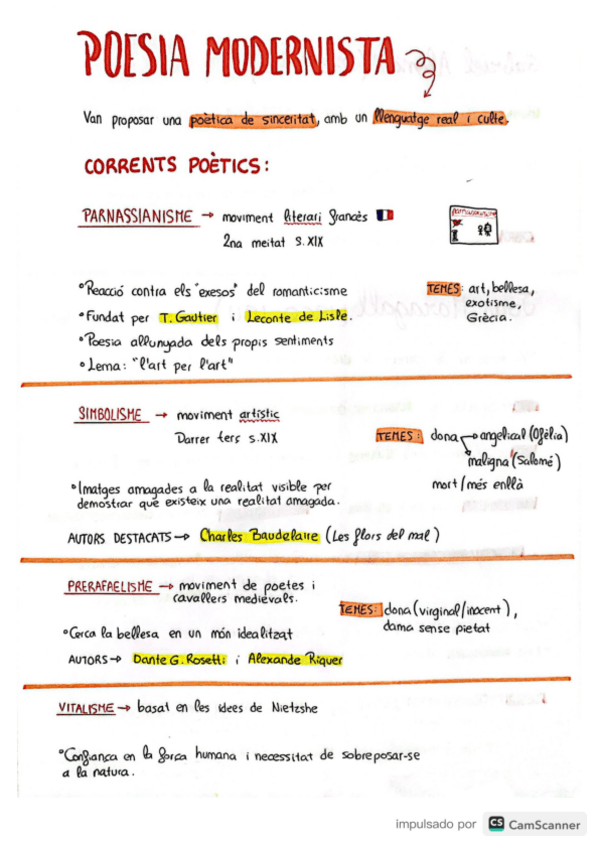 POESIA MODERNISTA
Van proposar una poètica de sinceritat, amb un llenguatge real i culte.
CORRENTS POÈTICS:
PARNASSIANISME → moviment literari francès
2na meitat s.XIX
°Reacció contra els "exesos" del romanticisme
°Fundat per T. Gautier i Leconte de Lisle.
°Poesia allunyada dels propis sentiments
°Lema: "l'art per l'art"
TEMES: art, bellesa,
exotisme,
Grècia.
SIMBOLISME → moviment artístic
Darrer terç s.XIX
TEMES: dona → angelical (Ofèlia)
maligna (Salomé)
mort / més enllà
°Imatges amagades a la realitat visible per
demostrar que existeix una realitat amagada.
AUTORS DESTACATS → Charles Baudelaire (Les flors del mal)
PRERAFAELISME → moviment de poetes i
cavallers medievals.
TEMES: dona (virginal/inocent),
dama sense pietat
°Cerca la bellesa en un món idealitzat
AUTORS → Dante G. Rosetti i Alexandre Riquer
VITALISME → basat en les idees de Nietzshe
°Confiança en la força humana i necessitat de sobreposar-se
a la natura.
impulsado por CS CamScanner